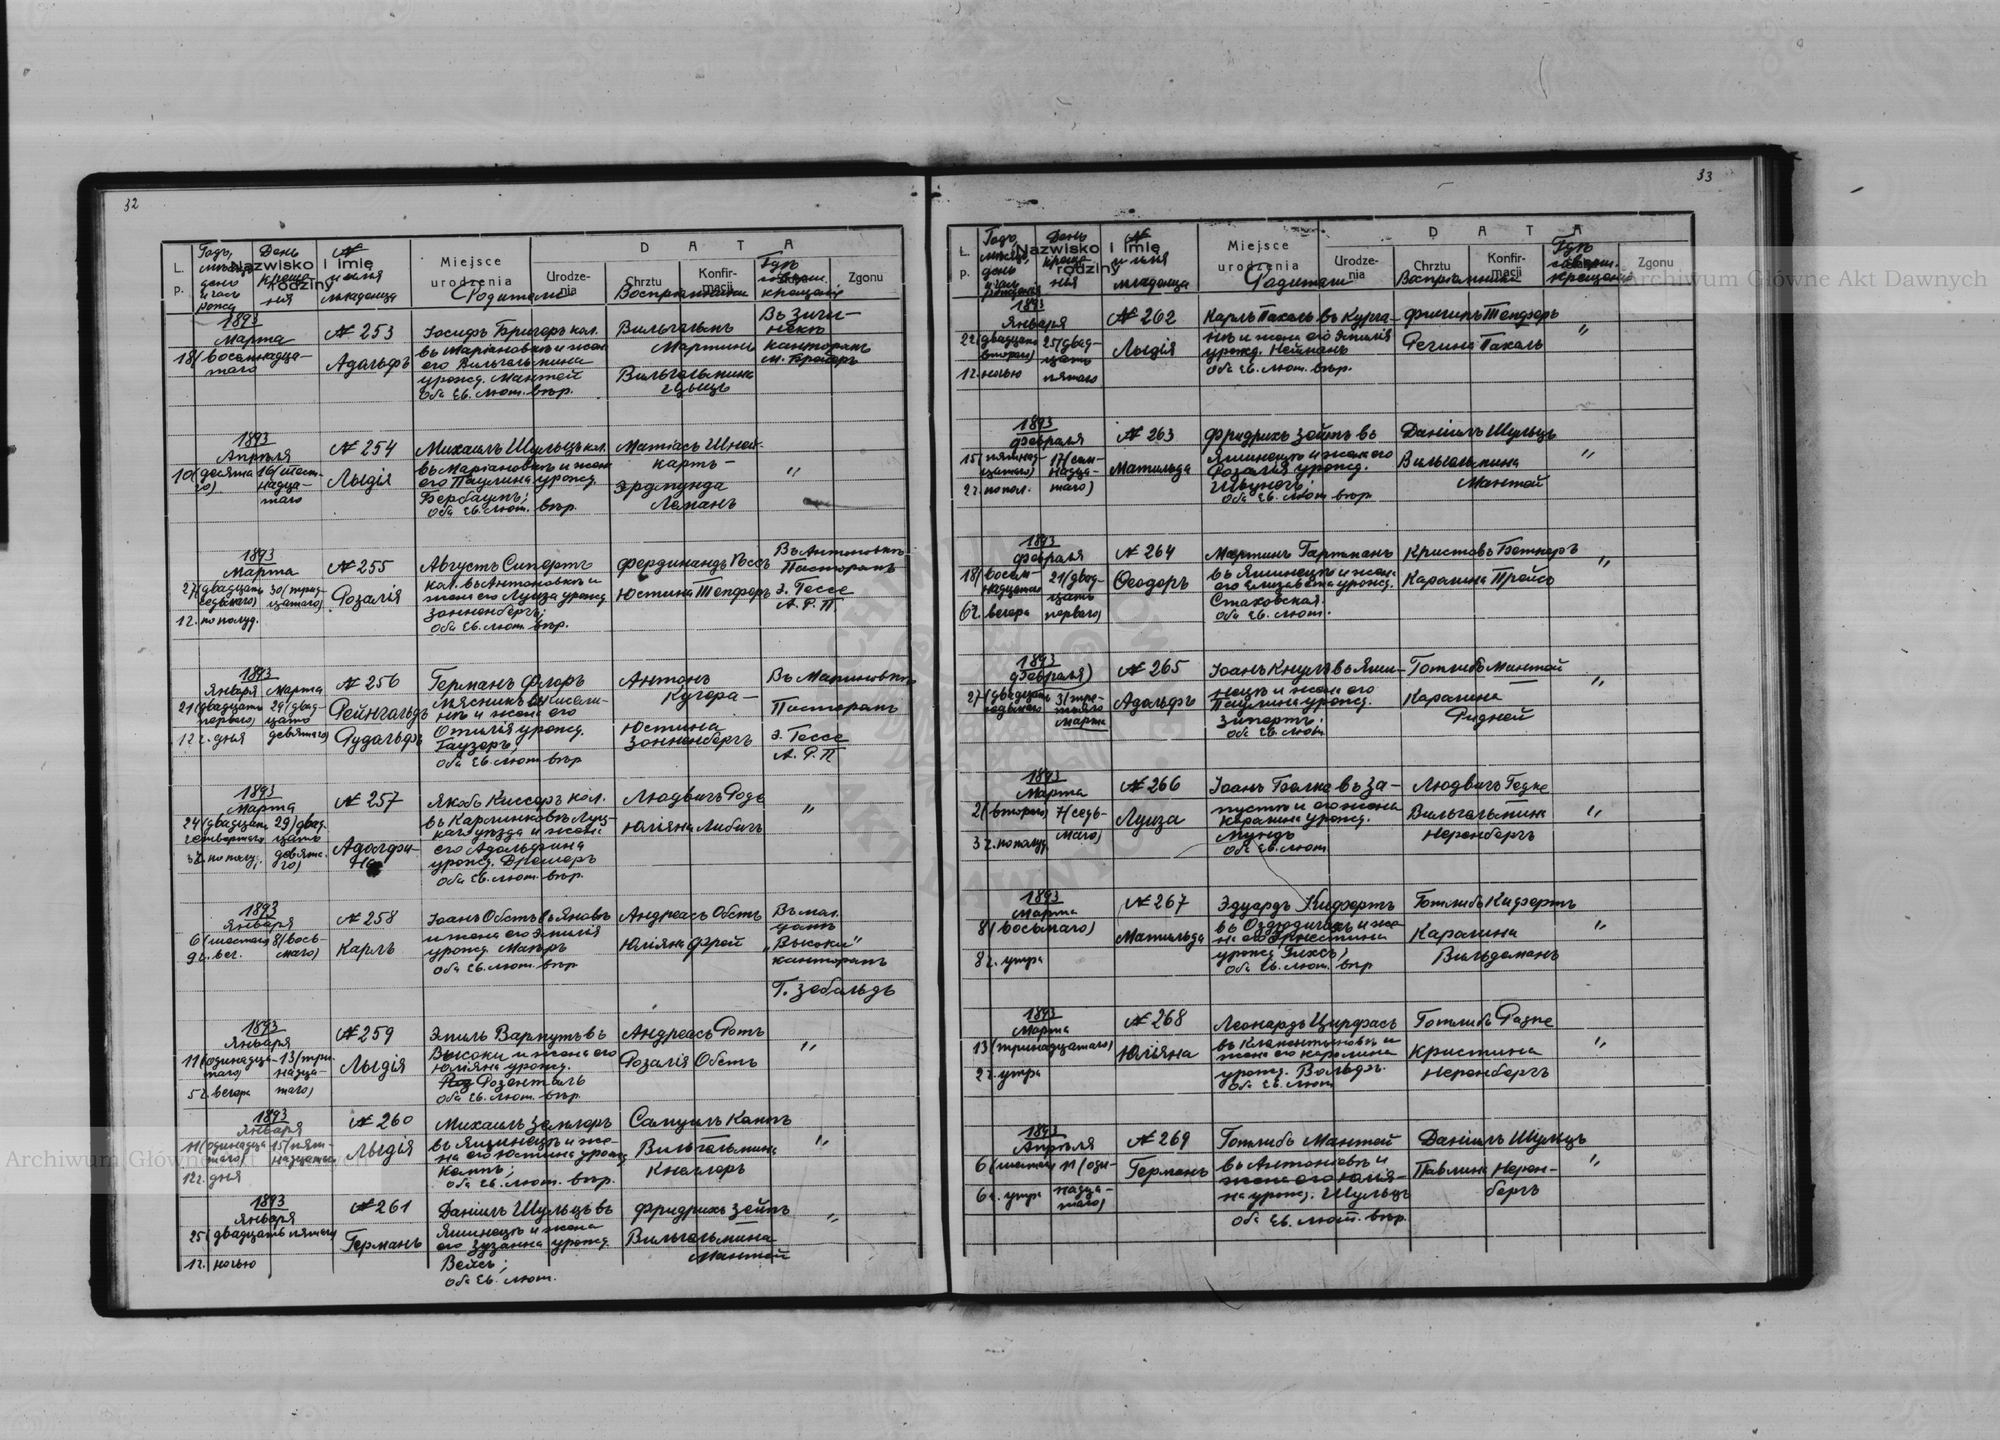 32
L. P.
Годъ, мѣсяцъ, день и часъ рожд.
День креще-ния
Nazwisko i Imię rodziny
№ и имя младенца
Miejsce urodzenia
Родители
D A T A
Urodze-nia
Chrztu
Воспріемники
Konfir-macji
Гдѣ соверш. крещеніе
Zgonu
1893
Марта
18 (восемнадца-таго
№ 253
Адольфъ
Іосифъ Бригеръ кол.
въ Маріановкѣ и жена
его Вильгельмина
урожд. Мантей
Оба Ев. лют. вѣр.
Вильгельмъ
Мартинъ
Вильгельмина
Въ
канторатъ
1893
Апрѣля
10 (десята-го)
16 (шест-надца-таго
№ 254
Лыдія
Михаилъ Шульцъ кол.
въ Маріановкѣ и жена
его Паулина урожд.
Бербаумъ;
Оба Ев. лют. вѣр.
Матіасъ Шней-
картъ -
Эрдмунда
Леманъ
"
1893
Марта
27 (двадцать седьмаго)
12. по полуд.
30 (трид-цатаго)
№ 255
Розалія
Августъ Сипертъ
кол. въ Антоновкѣ и
жена его Луиза урожд.
Зонненбергъ;
Оба Ев. лют. вѣр.
Фердинандъ Россъ
Юстина Тепферъ
Въ Антоновкѣ
Пасторатъ
Э. Гессе
А. Р. П.
1893
Января
21 (двадцать перваго)
12 ч. дня
Марта
29 (двад-цать девятаго)
№ 256
Рейнгольдъ
Рудольфъ
Германъ Флоръ
мясникъ въ Кисели-
нѣ и жена его
Отилія урожд.
Гаузеръ;
Оба Ев. лют. вѣр.
Антонъ
Кугера -
Юстина
Зонненбергъ
Въ Матиновкѣ
Пасторатъ
Э. Гессе
А. Р. П.
1893
Марта
24 (двадцать четвертаго
3 ч. по полуд.
29 (двад-цать девята-го)
№ 257
Адолфи-на
Якобъ Киссеръ кол.
въ Карлинковѣ Луц-
каго уѣзда и жена
его Адольфина
урожд. Дреслеръ
Оба Ев. лют. вѣр.
Людвигъ Роде
Юліяна Либигъ
"
1893
Января
6 (шестаго
9 ч. веч.
8 (вось-маго)
№ 258
Карлъ
Іоанъ Обстъ въ Яновѣ
и жена его Эмилія
урожд. Маеръ
Оба Ев. лют. вѣр
Андреасъ Обстъ
Юліяна Фрей
Въ мол.
домѣ
"Высоки"
канторатъ
Г. Зебальдъ
1893
Января
11 (одинадца-таго)
5 ч. вечера
13 (три-надца-таго)
№ 259
Лыдія
Эмиль Вармутъ въ
Высоки и жена его
Юліяна урожд.
Розенталь
Оба Ев. лют. вѣр.
Андреасъ Ротъ
Розалія Обстъ
"
1893
Января
11 (одинадца-таго)
12 ч. дня
15 (пят-надцатаго
№ 260
Лыдія
Михаилъ Землеръ
въ Яминецкѣ и же-
на его Юстина урожд.
Кеммъ;
Оба Ев. лют. вѣр.
Самуилъ Кеммъ
Вильгельмина
Кнеллеръ
"
1893
Января
25 (двадцать пятаго
1 ч. ночью
№ 261
Германъ
Даніилъ Шульцъ въ
Яминецкѣ и жена
его Зузанна урожд.
Вейсъ;
Оба Ев. лют.
Фридрихъ Зейтъ
Вильгельмина
Мантей
"
33
L. P.
Годъ, мѣсяцъ, день и часъ рожденія
День креще-нія
Nazwisko i Imię rodziny
№ и имя младенца
Miejsce urodzenia
Родители
D A T A
Urodze-nia
Chrztu
Воспріемники
Konfir-macji
Гдѣ соверш. крещеніе
Zgonu
1893
Января
22 (двадцать втораго)
12. ночью
25 (двад-цать пятаго
№ 262
Лыдія
Карлъ Пахаль въ Курга-
нѣ и жена его Эмилія
урожд. Нейманъ
Оба Ев. лют. вѣр.
Филипъ Тепферъ
Регина Пахаль
"
1893
Февраля
15 (пятнад-цатаго)
2 ч. по пол.
17 (сем-надца-таго)
№ 263
Матильда
Фридрихъ Зейтъ въ
Яминецкѣ и жена его
Розалія урожд.
Оба Ев. лют. вѣр
Даніилъ Шульцъ
Вильгельмина
Мантей
"
1893
Февраля
18 (восем-надцатаго
6 ч. вечера
21 (двад-цать перваго)
№ 264
Ѳеодоръ
Мартинъ Гартманъ
въ Яминецкѣ и жена
его Елизавета урожд.
Стаховская.
Оба Ев. лют.
Кристовъ Беткеръ
Каралина Прейсъ
"
1893
Февраля)
27 (двадцать седьмаго
3 (тре-тьяго марта
№ 265
Адольфъ
Іоанъ Кнулъ въ Ями-
нецкѣ и жена его
Паулина урожд.
Зипертъ;
Оба Ев. лют.
Готлибъ Мантей
Каралина
Ридней
"
1893
Марта
2 (втораго)
3 ч. по полуд
7 (седь-маго)
№ 266
Луиза
Іоанъ Гоолке въ За-
пустѣ и его жена
Каралина урожд.
Мундъ
Оба Ев. лют
Людвигъ Гедке
Вильгельмина
Неренбергъ
"
1893
Марта
8 (восьмаго)
8 ч. утра
№ 267
Матильда
Эдуардъ Кифертъ
въ Оздюдичахъ и же-
на его Эрнестина
урожд Гиксъ;
Оба Ев. лют. вѣр
Готлибъ Кифертъ
Каралина
Вильдеманъ
"
1893
Марта
13 (тринадцатаго)
2 ч. утра
№ 268
Юліяна
Леонардъ Цирфасъ
въ Клементиновкѣ и
жена его Каролина
урожд. Вольфъ
Оба Ев. лют
Готлибъ Радке
Кристина
Неренбергъ
"
1893
Апрѣля
6 (шестаго
6 ч. утра
11 (оди-надца-таго)
№ 269
Германъ
Готлибъ Мантей
въ Антоновкѣ и
жена его Юлія-
на урожд. Шульцъ
Оба Ев. лют. вѣр.
Даніилъ Шульцъ
Павлина Нерен-
бергъ
"
Archiwum Główne Akt Dawnych
Archiwum Główne Akt Dawnych